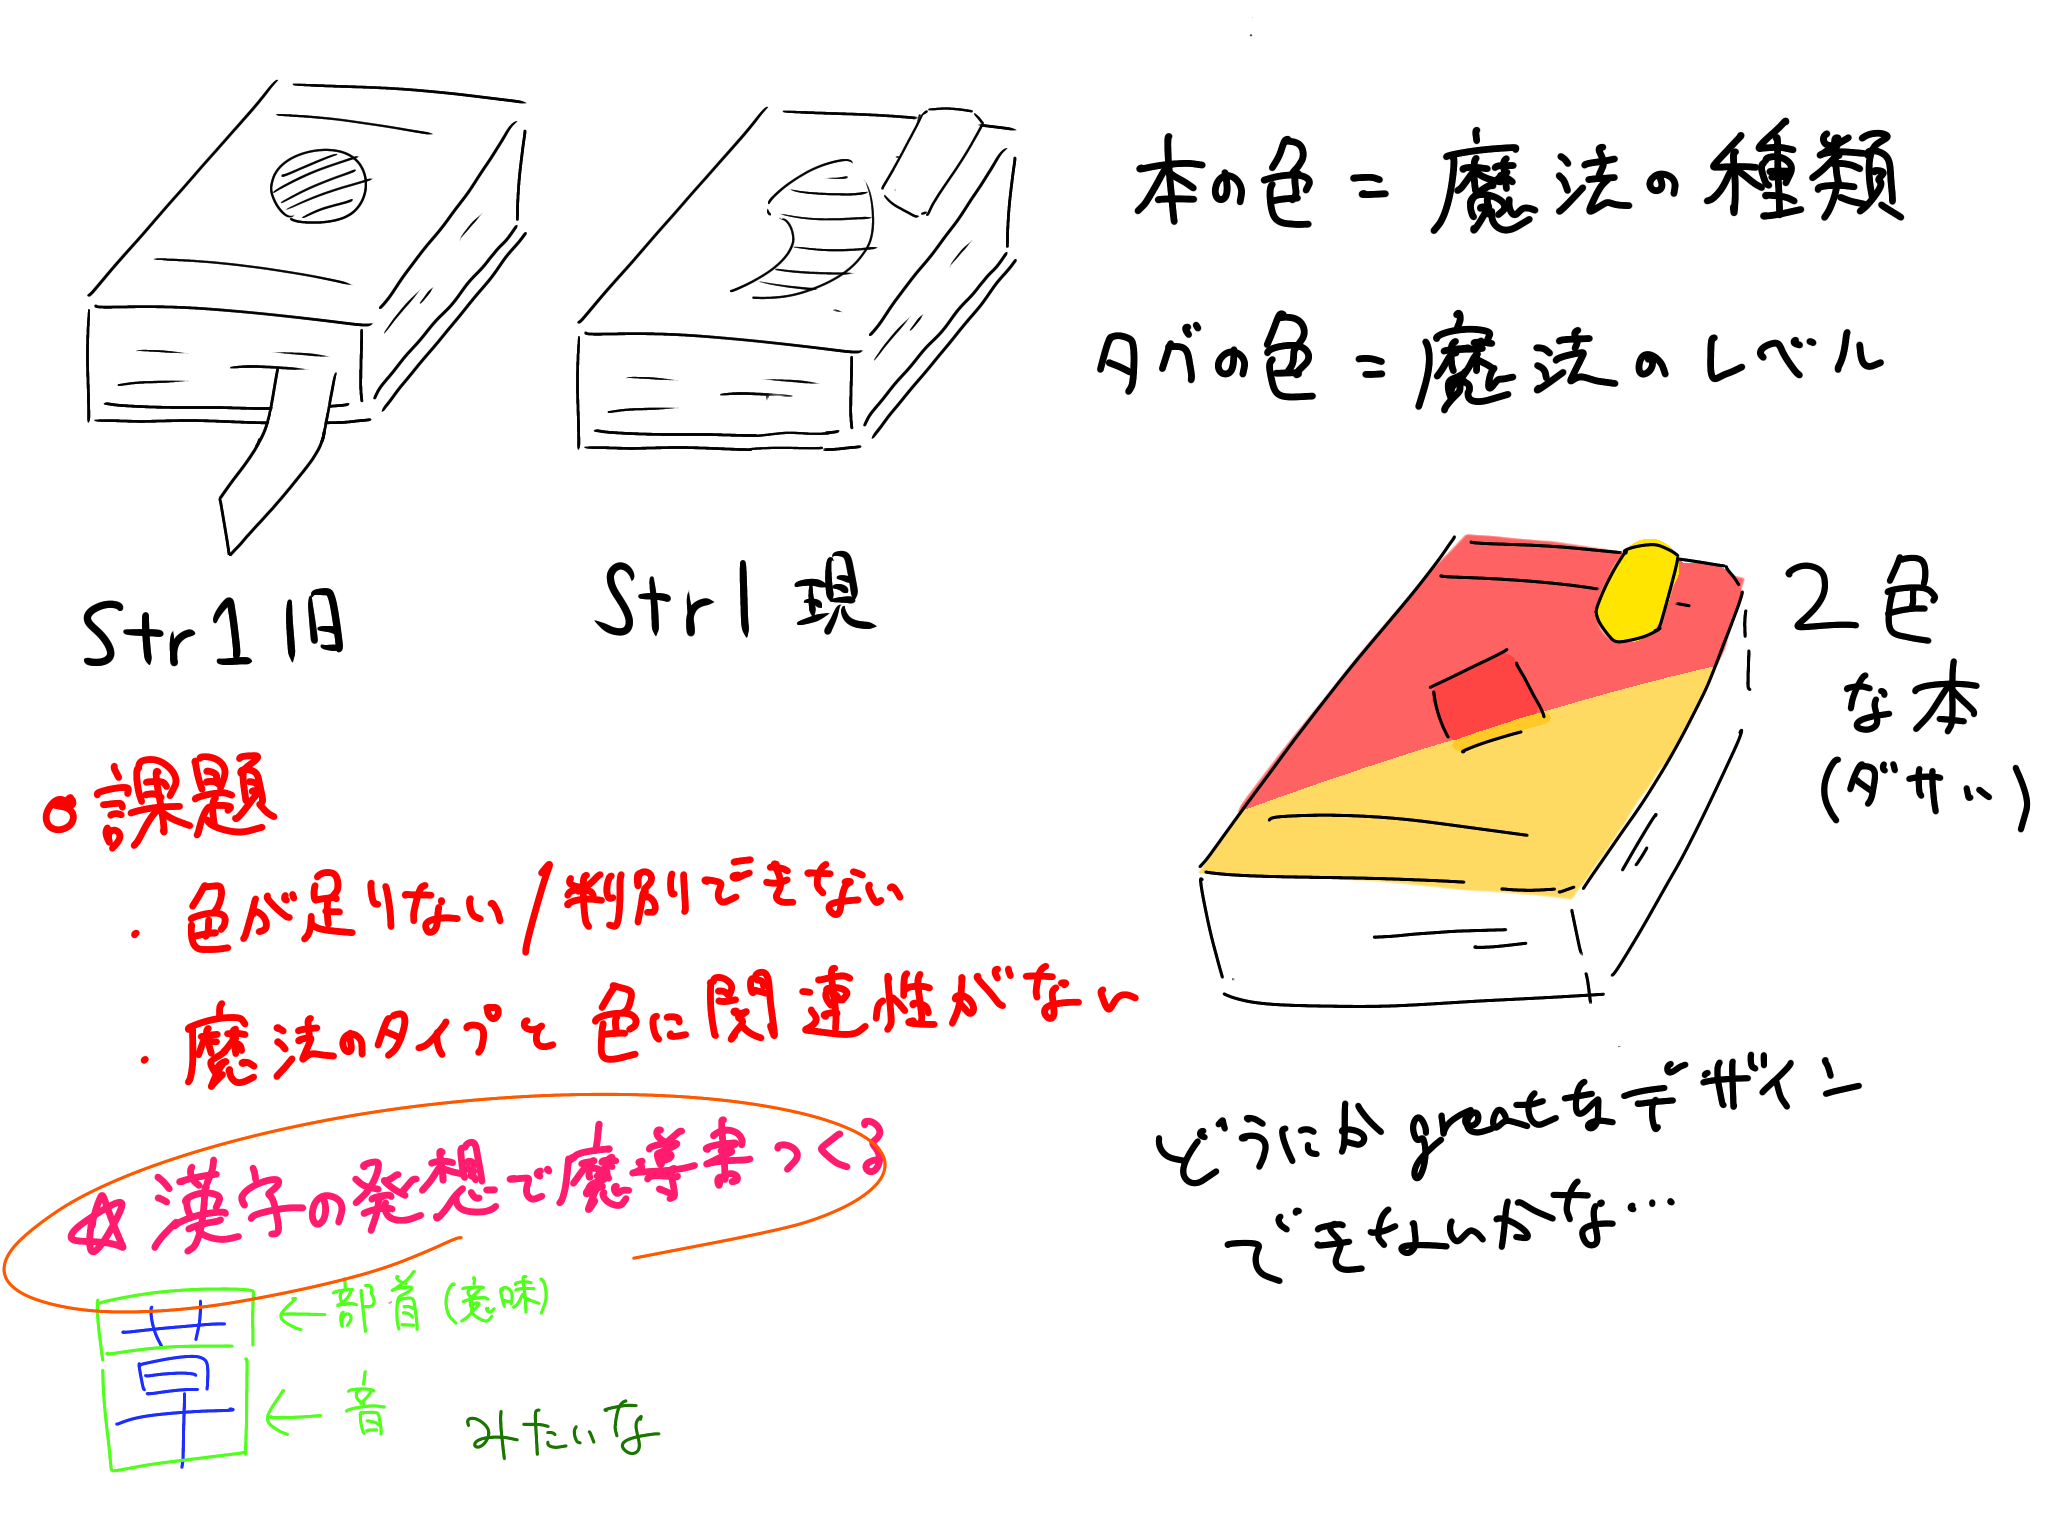 本の色=魔法の種類
タグの色=魔法のレベル
Str1 旧
Str1 現
2色
な本
(ダサい)
課題
・色が足りない/判別できない
・魔法のタイプと色に関連性がない
☆漢字の発想で魔導書つくる
草
←部首(意味)
←音
みたいな
どうにかgreatなデザイン
できないかな…